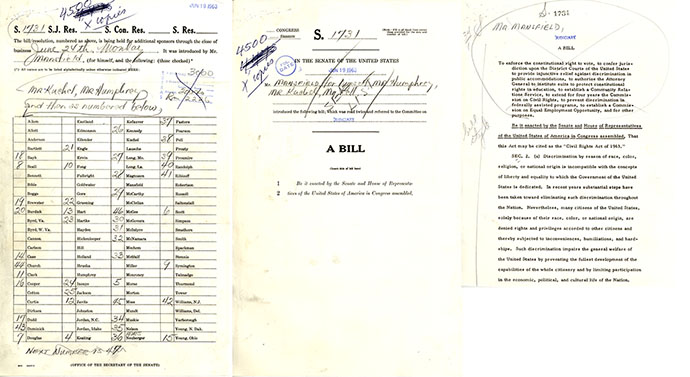 4500
X copies
JUN 19 1963
S. 1731 S.J. Res. S. Con. Res. S. Res.
The bill/resolution, numbered as above, is being held for additional sponsors through the close of
business June 24th, Monday It was introduced by Mr.
Mansfield, (for himself, and the following: (those checked))
3000
Mr. Kuchel, Mr. Humphrey
(and then as numbered below)
Aiken Eastland Kefauver 39 Pastore
Allott Ellender 26 Kennedy Pearson
Anderson Kuchel 38 Pell
Bartlett 21 Engle Lausche Prouty
18 Bayh Ervin 29 Long, Mo. 39 Proxmire
8 Beall 10 Fong Long, La. Randolph
Bennett Fulbright 28 Magnuson 41 Ribicoff
Bible Goldwater Mansfield Robertson
Boggs Gore 29 McCarthy Russell
19 Brewster 22 Gruening McClellan Saltonstall
20 Burdick 13 Hart 46 McGee 6 Scott
Byrd, Va. 23 Hartke 30 McGovern Simpson
Byrd, W. Va. Hayden 31 McIntyre Smathers
Cannon Hickenlooper 32 McNamara Smith
Carlson Hill Mechem Sparkman
14 Case Holland 33 Metcalf Stennis
44 Church Hruska Miller 9 Symington
11 Clark Humphrey Monroney Talmadge
16 Cooper 24 Inouye 5 Morse Thurmond
Cotton 25 Jackson Morton Tower
Curtis 12 Javits 45 Moss 42 Williams, N.J.
Dirksen Johnston Mundt Williams, Del.
17 Dodd Jordan, N.C. 34 Muskie Yarborough
43 Dominick Jordan, Idaho 35 Nelson Young, N. Dak.
7 Douglas 4 Keating 36 Neuberger 15 Young, Ohio
NEXT NUMBER IS 47
(OFFICE OF THE SECRETARY OF THE SENATE)
CONGRESS
Session
S. 1731
4500
X copies
IN THE SENATE OF THE UNITED STATES
JUN 19 1963
Mr. Mansfield, for himself, Mr. Humphrey,
Mr. Kuchel,
introduced the following bill; which was read twice and referred to the Committee on
JUDICIARY
A BILL
(Insert title of bill here)
1 Be it enacted by the Senate and House of Representa-
2 tives of the United States of America in Congress assembled,
S. 1731
Mr. MANSFIELD,
JUDICIARY
A BILL
To enforce the constitutional right to vote, to confer juris-
diction upon the District Courts of the United States
to provide injunctive relief against discrimination in
public accommodations, to authorize the Attorney
General to institute suits to protect constitutional
rights in education, to establish a Community Rela-
tions Service, to extend for four years the Commis-
sion on Civil Rights, to prevent discrimination in
federally assisted programs, to establish a Commis-
sion on Equal Employment Opportunity, and for
other purposes.
Be it enacted by the Senate and House of Representatives
of the United States of America in Congress assembled, That
this Act may be cited as the "Civil Rights Act of 1963."
SEC. 2. (a) Discrimination by reason of race, color,
religion, or national origin is incompatible with the concepts
of liberty and equality to which the Government of the United
States is dedicated. In recent years substantial steps have
been taken toward eliminating such discrimination throughout
the Nation. Nevertheless, many citizens of the United States,
solely because of their race, color, or national origin, are
denied rights and privileges accorded to other citizens and
thereby subjected to inconveniences, humiliations, and hard-
ships. Such discrimination impairs the general welfare of
the United States by preventing the fullest development of the
capabilities of the whole citizenry and by limiting participation
in the economic, political, and cultural life of the Nation.